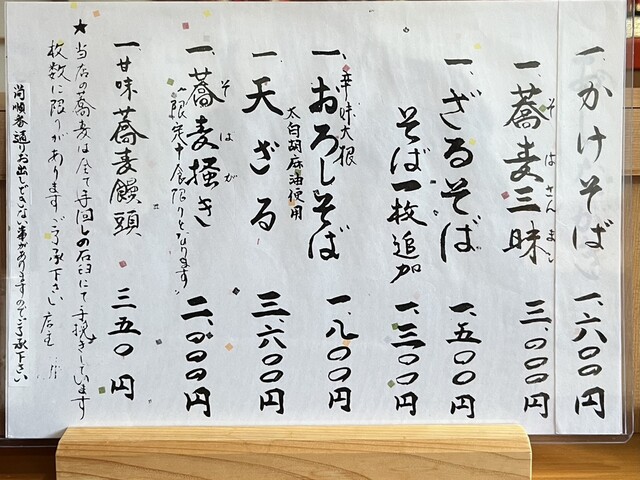 一、かけそば 一、六〇〇円
一、蕎麦三昧 三、〇〇〇円
そばさんまい
一、ざるそば 一、五〇〇円
そば一枚追加 一、三〇〇円
辛味大根
一、おろしそば 一、八〇〇円
太白胡麻油使用
一、天ざる 三、六〇〇円
そばがき
一、蕎麦掻き 二、〇〇〇円
限定十食限りとなります
一、甘味蕎麦饅頭 三五〇円
★当店の蕎麦は全て手回しの石臼にて手挽きしています
枚数に限りがあります ご了承下さい 店主
尚順番通りお出しできない事がありますのでご了承下さい